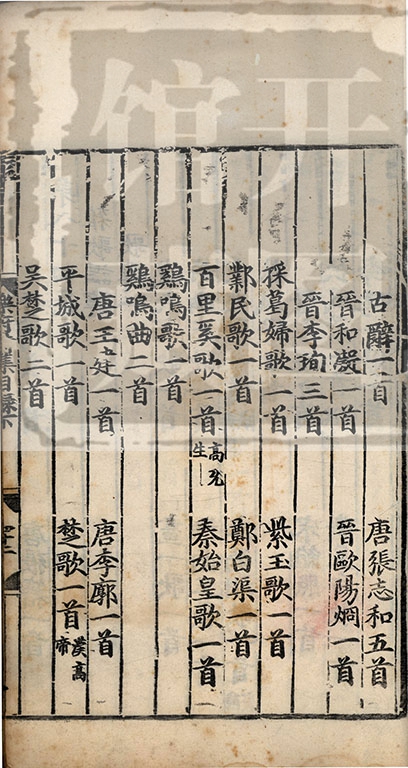 古辭 首 唐張志和五首
晉和凝一首 晉歐陽烱一首
晉李珣三首
採葛婦歌一首 紫玉歌一首
鄴民歌一首 鄭白渠一首
百里奚歌一首 高允生 秦始皇歌一首
鷄鳴歌一首
鷄鳴曲二首
唐王建一首 唐李廓一首
平城歌一首 楚歌一首 漢高帝
吳楚歌二首
目録下
开
馆